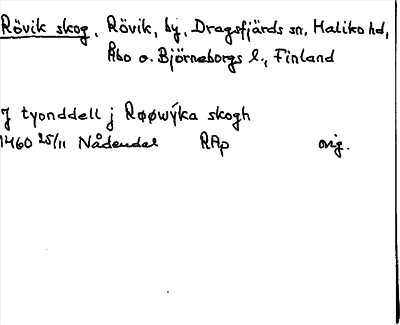 Rövik skog, Rövik, by, Dragsfjärds sn, Haliko hd,
Åbo o. Björneborgs l., Finland
J tyonddell j Røøwÿka skogh
1460 25/11 Nådendal RAp orig.